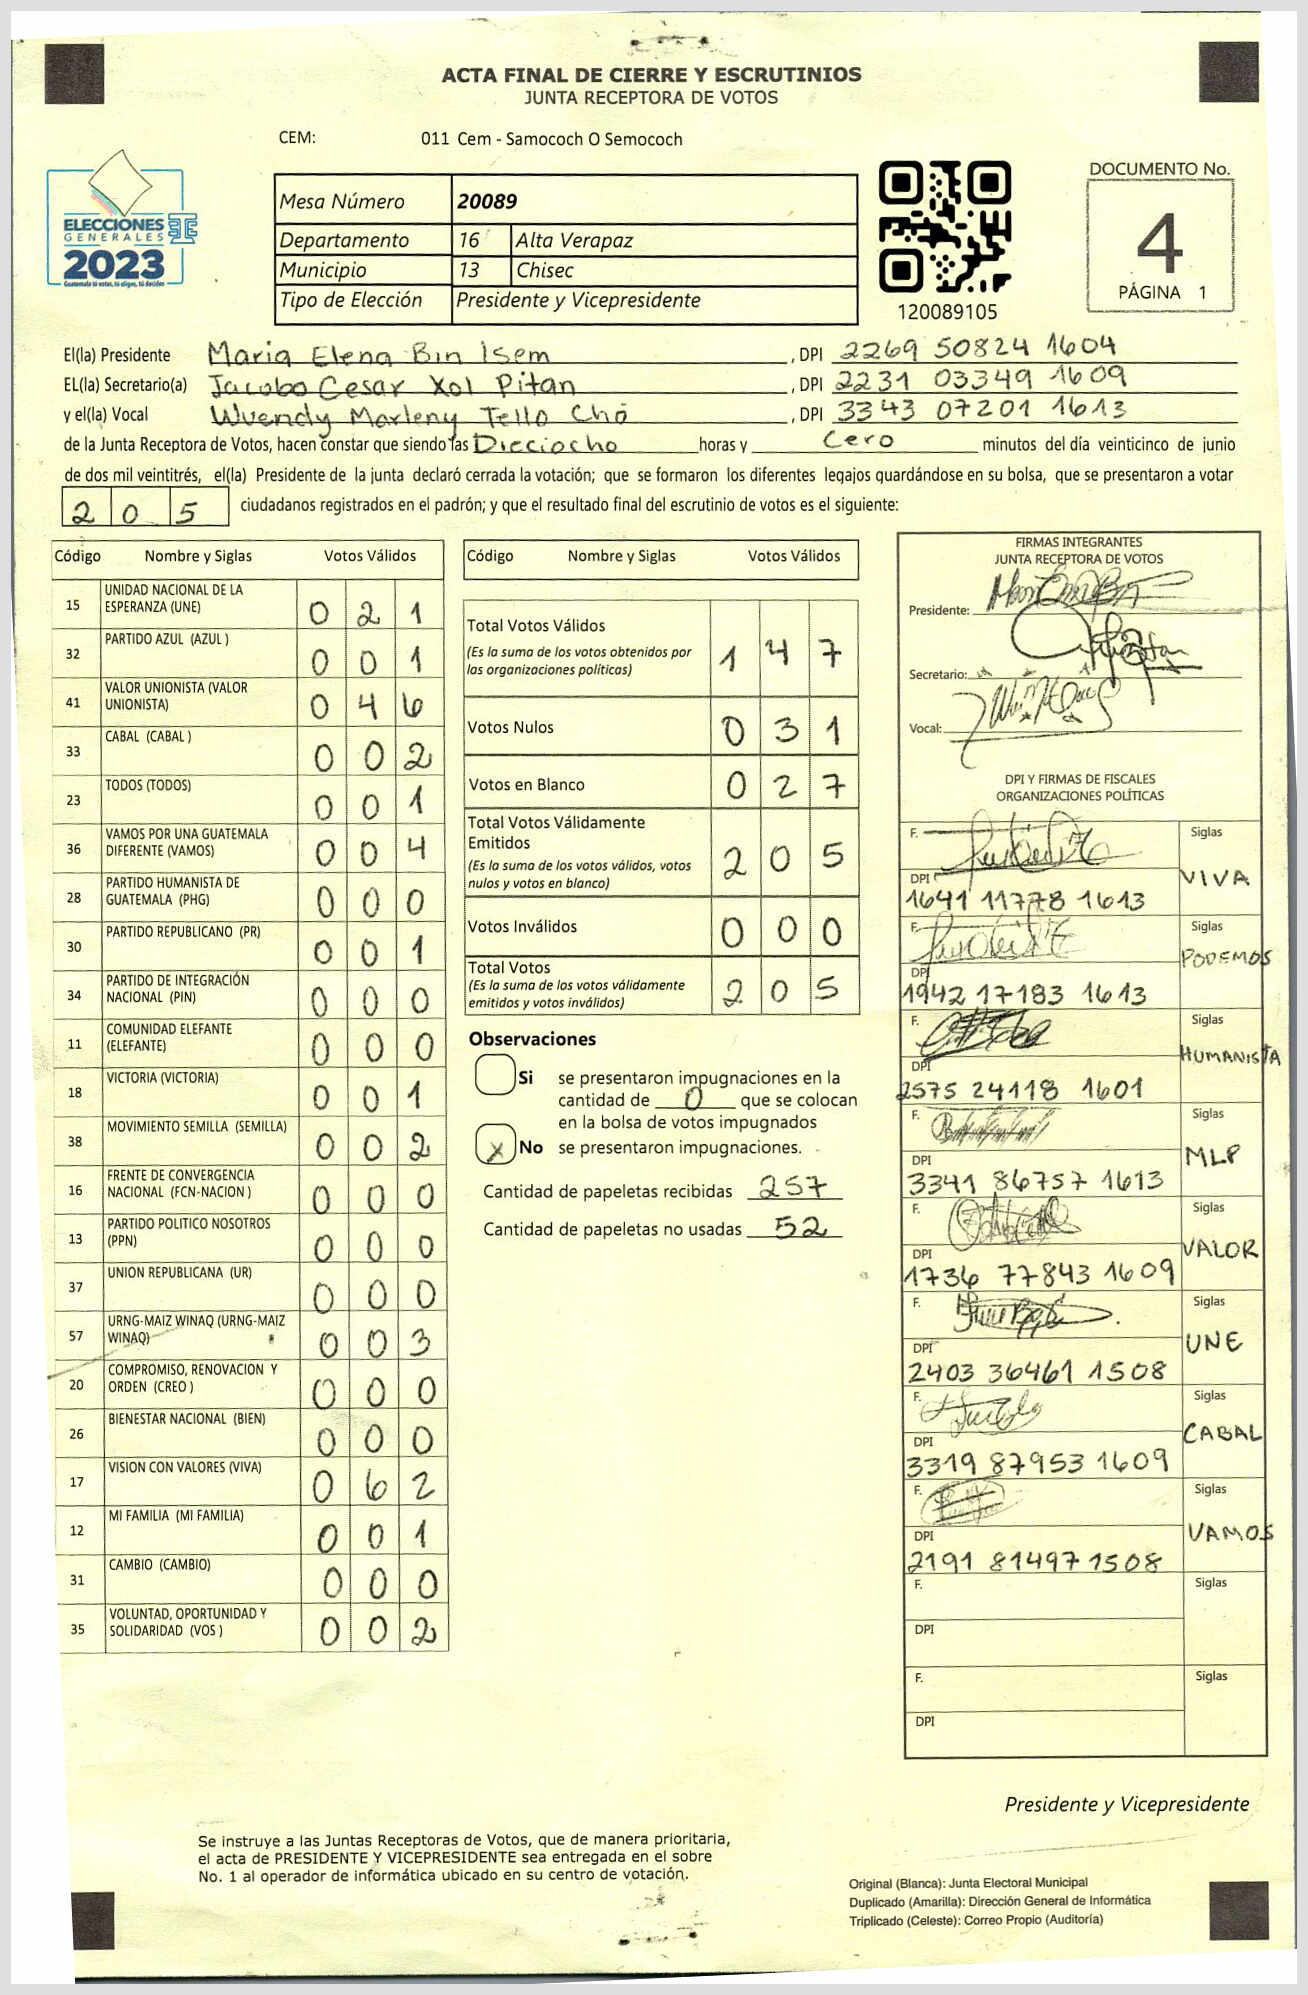 ACTA FINAL DE CIERRE Y ESCRUTINIOS
JUNTA RECEPTORA DE VOTOS
CEM: 011 Cem - Samococh O Semococh
ELECCIONES
GENERALES
2023
Guatemala tú votas, tú eliges, tú decides
Mesa Número 20089
Departamento 16 Alta Verapaz
Municipio 13 Chisec
Tipo de Elección Presidente y Vicepresidente
120089105
DOCUMENTO No.
4
PÁGINA 1
El(la) Presidente Maria Elena Bin Isem , DPI 2269 50824 1604
EL(la) Secretario(a) Jacobo Cesar Xol Pitan , DPI 2231 03349 1609
y el(la) Vocal Wuendy Marleny Tello Chó , DPI 3343 07201 1613
de la Junta Receptora de Votos, hacen constar que siendo las Dieciocho horas y Cero minutos del día veinticinco de junio
de dos mil veintitrés, el(la) Presidente de la junta declaró cerrada la votación; que se formaron los diferentes legajos guardándose en su bolsa, que se presentaron a votar
205 ciudadanos registrados en el padrón; y que el resultado final del escrutinio de votos es el siguiente:
Código Nombre y Siglas Votos Válidos
15 UNIDAD NACIONAL DE LA
ESPERANZA (UNE) 0 2 1
32 PARTIDO AZUL (AZUL ) 0 0 1
41 VALOR UNIONISTA (VALOR
UNIONISTA) 0 4 6
33 CABAL (CABAL ) 0 0 2
23 TODOS (TODOS) 0 0 1
36 VAMOS POR UNA GUATEMALA
DIFERENTE (VAMOS) 0 0 4
28 PARTIDO HUMANISTA DE
GUATEMALA (PHG) 0 0 0
30 PARTIDO REPUBLICANO (PR) 0 0 1
34 PARTIDO DE INTEGRACIÓN
NACIONAL (PIN) 0 0 0
11 COMUNIDAD ELEFANTE
(ELEFANTE) 0 0 0
18 VICTORIA (VICTORIA) 0 0 1
38 MOVIMIENTO SEMILLA (SEMILLA) 0 0 2
16 FRENTE DE CONVERGENCIA
NACIONAL (FCN-NACION ) 0 0 0
13 PARTIDO POLITICO NOSOTROS
(PPN) 0 0 0
37 UNION REPUBLICANA (UR) 0 0 0
57 URNG-MAIZ WINAQ (URNG-MAIZ
WINAQ) 0 0 3
20 COMPROMISO, RENOVACION Y
ORDEN (CREO ) 0 0 0
26 BIENESTAR NACIONAL (BIEN) 0 0 0
17 VISION CON VALORES (VIVA) 0 6 2
12 MI FAMILIA (MI FAMILIA) 0 0 1
31 CAMBIO (CAMBIO) 0 0 0
35 VOLUNTAD, OPORTUNIDAD Y
SOLIDARIDAD (VOS ) 0 0 2
Código Nombre y Siglas Votos Válidos
Total Votos Válidos
(Es la suma de los votos obtenidos por
las organizaciones políticas) 1 4 7
Votos Nulos 0 3 1
Votos en Blanco 0 2 7
Total Votos Válidamente
Emitidos
(Es la suma de los votos válidos, votos
nulos y votos en blanco) 2 0 5
Votos Inválidos 0 0 0
Total Votos
(Es la suma de los votos válidamente
emitidos y votos inválidos) 2 0 5
Observaciones
Si se presentaron impugnaciones en la
cantidad de 0 que se colocan
en la bolsa de votos impugnados
X No se presentaron impugnaciones.
Cantidad de papeletas recibidas 257
Cantidad de papeletas no usadas 52
FIRMAS INTEGRANTES
JUNTA RECEPTORA DE VOTOS
Presidente:
Secretario:
Vocal:
DPI Y FIRMAS DE FISCALES
ORGANIZACIONES POLÍTICAS
F. Siglas
DPI VIVA
1641 11778 1613
F. Siglas
PODEMOS
DPI
1942 17183 1613
F. Siglas
HUMANISTA
DPI
2575 24118 1601
F. Siglas
MLP
DPI
3341 86757 1613
F. Siglas
VALOR
DPI
1736 77843 1609
F. Siglas
UNE
DPI
2403 36461 1508
F. Siglas
CABAL
DPI
3319 87953 1609
F. Siglas
VAMOS
DPI
2191 81497 1508
F. Siglas
DPI
F. Siglas
DPI
Presidente y Vicepresidente
Se instruye a las Juntas Receptoras de Votos, que de manera prioritaria,
el acta de PRESIDENTE Y VICEPRESIDENTE sea entregada en el sobre
No. 1 al operador de informática ubicado en su centro de votación.
Original (Blanca): Junta Electoral Municipal
Duplicado (Amarilla): Dirección General de Informática
Triplicado (Celeste): Correo Propio (Auditoría)